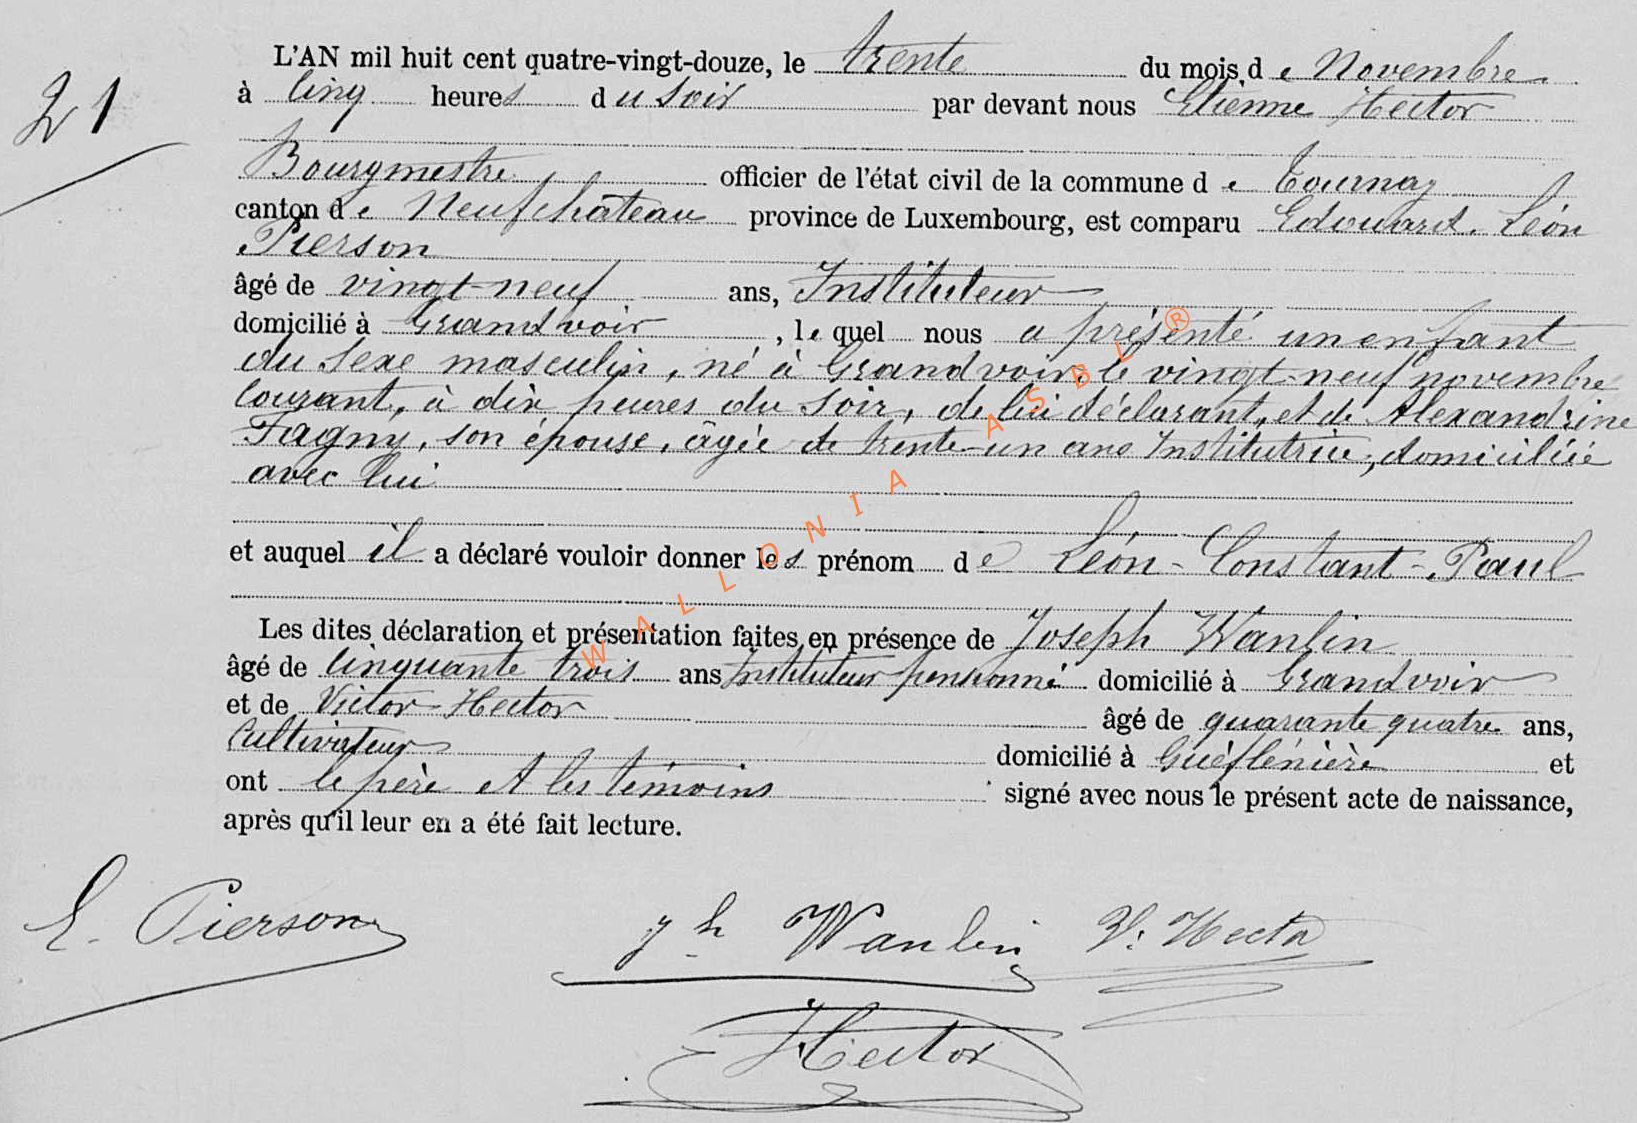 21
L'AN mil huit cent quatre-vingt-douze, le trente du mois d e Novembre
à cinq heures du soir par devant nous Etienne Hector
Bourgmestre officier de l'état civil de la commune d e Tournay
canton d e Neufchâteau province de Luxembourg, est comparu Edouard. Léon
Pierson
âgé de vingt-neuf ans, Instituteur
domicilié à Grandvoir, le quel nous a présenté un enfant
du sexe masculin, né à Grandvoir, le vingt-neuf novembre
courant, à dix heures du soir, de lui déclarant, et de Alexandrine
Fagny, son épouse, âgée de trente-un ans Institutrice, domiciliée
avec lui
et auquel il a déclaré vouloir donner les prénom de Léon-Constant-Paul
Les dites déclaration et présentation faites en présence de Joseph Wanlin
âgé de cinquante trois ans Instituteur pensionné domicilié à Grandvoir
et de Victor-Hector âgé de quarante quatre ans,
Cultivateur domicilié à et
ont le père et les témoins signé avec nous le présent acte de naissance,
après qu'il leur en a été fait lecture.
E. Pierson Jh Wanlin V. Hector
Hector
WALLONIA ASBL ®